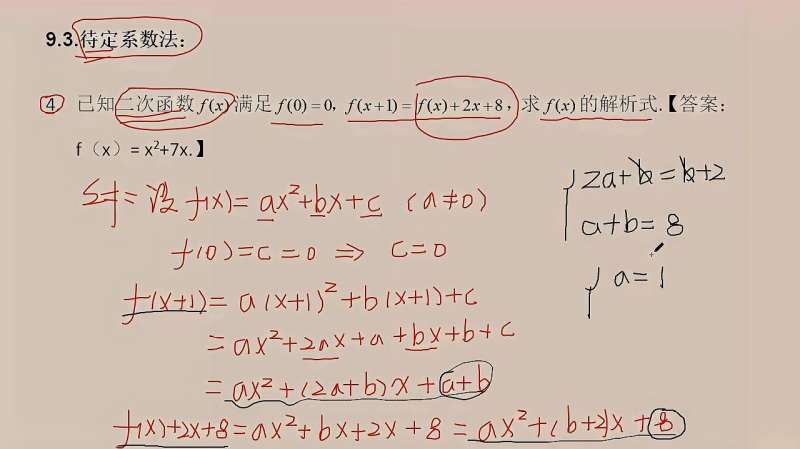 9.3.待定系数法：
④ 已知二次函数 f(x) 满足 f(0)=0，f(x+1)=f(x)+2x+8，求 f(x) 的解析式.【答案：
f（x）= x²+7x.】
解：设 f(x)=ax²+bx+c (a≠0)
f(0)=c=0 ⇒ c=0
f(x+1)=a(x+1)²+b(x+1)+c
=ax²+2ax+a+bx+b+c
=ax²+(2a+b)x+a+b
f(x)+2x+8=ax²+bx+2x+8=ax²+(b+2)x+8
{2a+b=b+2
a+b=8
{a=1